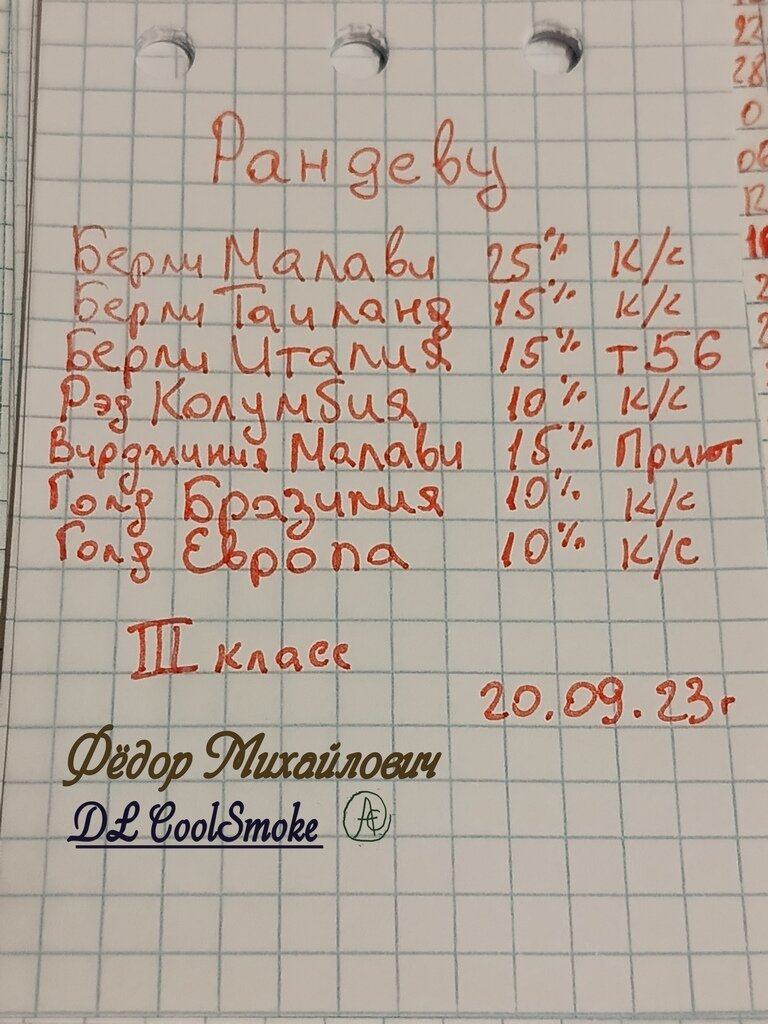 Рандеву
Берли Малави 25% к/с
Берли Таиланд 15% к/с
Берли Италия 15% т56
Рэд Колумбия 10% к/с
Вирджиния Малави 15% Приют
Голд Бразилия 10% к/с
Голд Европа 10% к/с
III класс
20.09.23г
Фёдор Михайлович
DL CoolSmoke
22
28
0
06
12